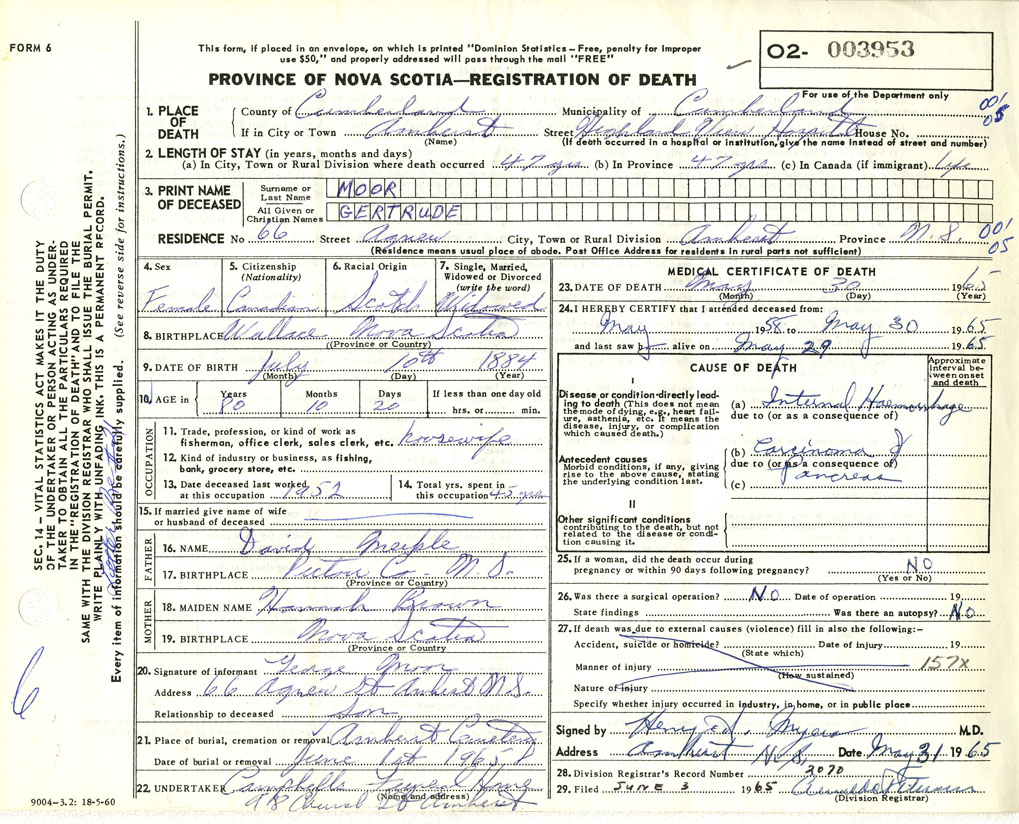 FORM 6
This form, if placed in an envelope, on which is printed "Dominion Statistics – Free, penalty for improper
use $50," and properly addressed will pass through the mail "FREE"
O2- 003953
PROVINCE OF NOVA SCOTIA—REGISTRATION OF DEATH
For use of the Department only
1. PLACE OF DEATH
County of Cumberland Municipality of Cumberland 001
If in City or Town Amherst Street Highland View Hospital House No. 05
(Name) (If death occurred in a hospital or institution, give the name instead of street and number)
2. LENGTH OF STAY (in years, months and days)
(a) In City, Town or Rural Division where death occurred 47 yrs (b) In Province 47 yrs (c) In Canada (if immigrant) Life
3. PRINT NAME OF DECEASED
Surname or Last Name MOOR
All Given or Christian Names GERTRUDE
RESIDENCE No 66 Street Agnew City, Town or Rural Division Amherst Province N.S. 001 05
(Residence means usual place of abode. Post Office Address for residents in rural parts not sufficient)
4. Sex Female
5. Citizenship (Nationality) Canadian
6. Racial Origin Scotch
7. Single, Married, Widowed or Divorced (write the word) Widowed
8. BIRTHPLACE Wallace Nova Scotia
(Province or Country)
9. DATE OF BIRTH July 10th 1884
(Month) (Day) (Year)
10. AGE in Years 80 Months 10 Days 20 If less than one day old hrs. or min.
OCCUPATION
11. Trade, profession, or kind of work as
fisherman, office clerk, sales clerk, etc. housewife
12. Kind of industry or business, as fishing,
bank, grocery store, etc.
13. Date deceased last worked at this occupation 1952
14. Total yrs. spent in this occupation 45 yrs
15. If married give name of wife
or husband of deceased
FATHER
16. NAME David
17. BIRTHPLACE Pictou Co. N.S.
(Province or Country)
MOTHER
18. MAIDEN NAME Hannah Brown
19. BIRTHPLACE Nova Scotia
(Province or Country)
20. Signature of informant George Moor
Address 66 Agnew St Amherst N.S.
Relationship to deceased Son
21. Place of burial, cremation or removal Amherst Cemetery
Date of burial or removal June 1st 1965
22. UNDERTAKER Campbells Funeral Home
(Name and address)
98 Church St Amherst
MEDICAL CERTIFICATE OF DEATH
23. DATE OF DEATH May 30 1965
(Month) (Day) (Year)
24. I HEREBY CERTIFY that I attended deceased from:
May 1958 to May 30 1965
and last saw h alive on May 29 1965
CAUSE OF DEATH
Approximate interval between onset and death
I
Disease or condition directly leading to death (This does not mean
the mode of dying, e.g., heart failure, asthenia, etc. It means the
disease, injury, or complication
which caused death.)
(a) Internal Haemorrhage
due to (or as a consequence of)
Antecedent causes
Morbid conditions, if any, giving
rise to the above cause, stating
the underlying condition last.
(b) Carcinoma of
due to (or as a consequence of)
Pancreas
(c)
II
Other significant conditions
contributing to the death, but not
related to the disease or condition causing it.
25. If a woman, did the death occur during
pregnancy or within 90 days following pregnancy? NO
(Yes or No)
26. Was there a surgical operation? NO Date of operation 19
State findings Was there an autopsy? NO
27. If death was due to external causes (violence) fill in also the following:–
Accident, suicide or homicide? Date of injury 19
(State which)
Manner of injury 157X
(How sustained)
Nature of injury
Specify whether injury occurred in industry, in home, or in public place
Signed by Henry Myers M.D.
Address Amherst N.S. Date May 31 1965
28. Division Registrar's Record Number 2070
29. Filed JUNE 3 1965
(Division Registrar)
SEC. 14 – VITAL STATISTICS ACT MAKES IT THE DUTY
OF THE UNDERTAKER OR PERSON ACTING AS UNDER-
TAKER TO OBTAIN ALL THE PARTICULARS REQUIRED
IN THE "REGISTRATION OF DEATH" AND TO FILE THE
SAME WITH THE DIVISION REGISTRAR WHO SHALL ISSUE THE BURIAL PERMIT.
WRITE PLAINLY WITH UNFADING INK. THIS IS A PERMANENT RECORD.
Every item of information should be carefully supplied. (See reverse side for instructions.)
6
9004–3.2: 18-5-60